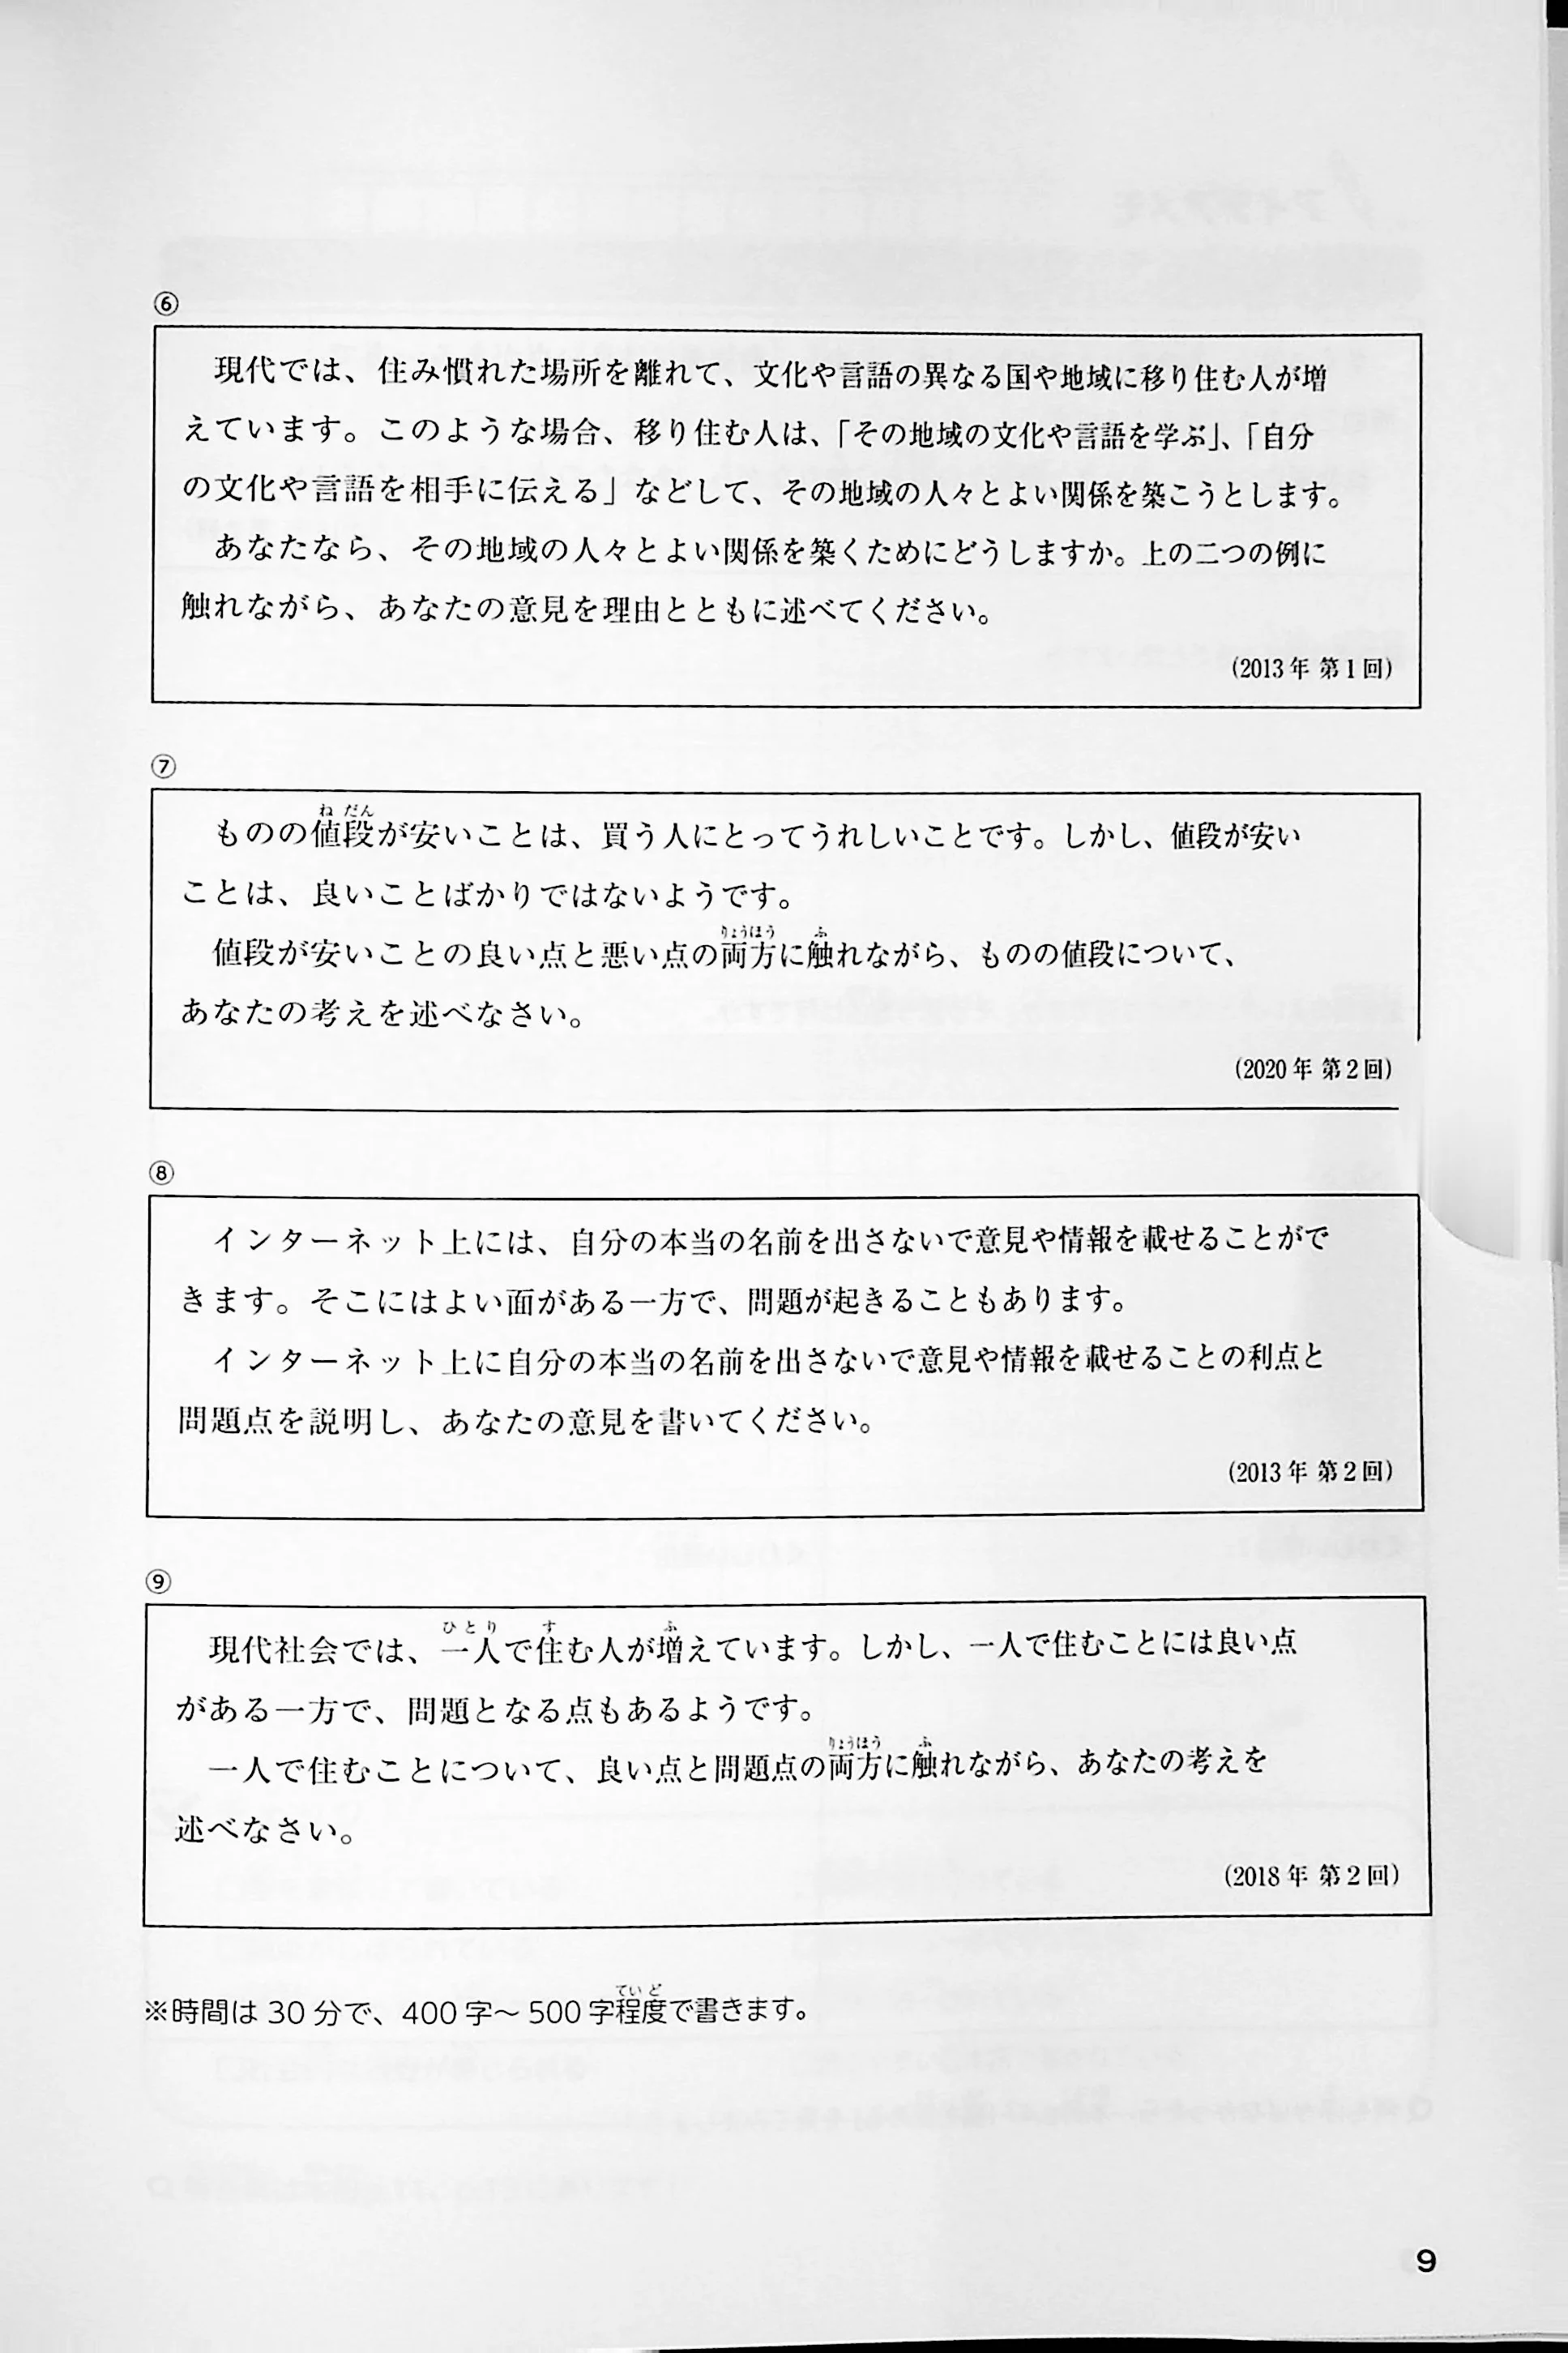 ⑥
現代では、住み慣れた場所を離れて、文化や言語の異なる国や地域に移り住む人が増
えています。このような場合、移り住む人は、「その地域の文化や言語を学ぶ」、「自分
の文化や言語を相手に伝える」などして、その地域の人々とよい関係を築こうとします。
あなたなら、その地域の人々とよい関係を築くためにどうしますか。上の二つの例に
触れながら、あなたの意見を理由とともに述べてください。
(2013年 第1回)
⑦
ねだん
ものの値段が安いことは、買う人にとってうれしいことです。しかし、値段が安い
ことは、良いことばかりではないようです。
りょうほう ふ
値段が安いことの良い点と悪い点の両方に触れながら、ものの値段について、
あなたの考えを述べなさい。
(2020年 第2回)
⑧
インターネット上には、自分の本当の名前を出さないで意見や情報を載せることがで
きます。そこにはよい面がある一方で、問題が起きることもあります。
インターネット上に自分の本当の名前を出さないで意見や情報を載せることの利点と
問題点を説明し、あなたの意見を書いてください。
(2013年 第2回)
⑨
ひとり す ふ
現代社会では、一人で住む人が増えています。しかし、一人で住むことには良い点
がある一方で、問題となる点もあるようです。
りょうほう ふ
一人で住むことについて、良い点と問題点の両方に触れながら、あなたの考えを
述べなさい。
(2018年 第2回)
ていど
※時間は30分で、400字～500字程度で書きます。
9